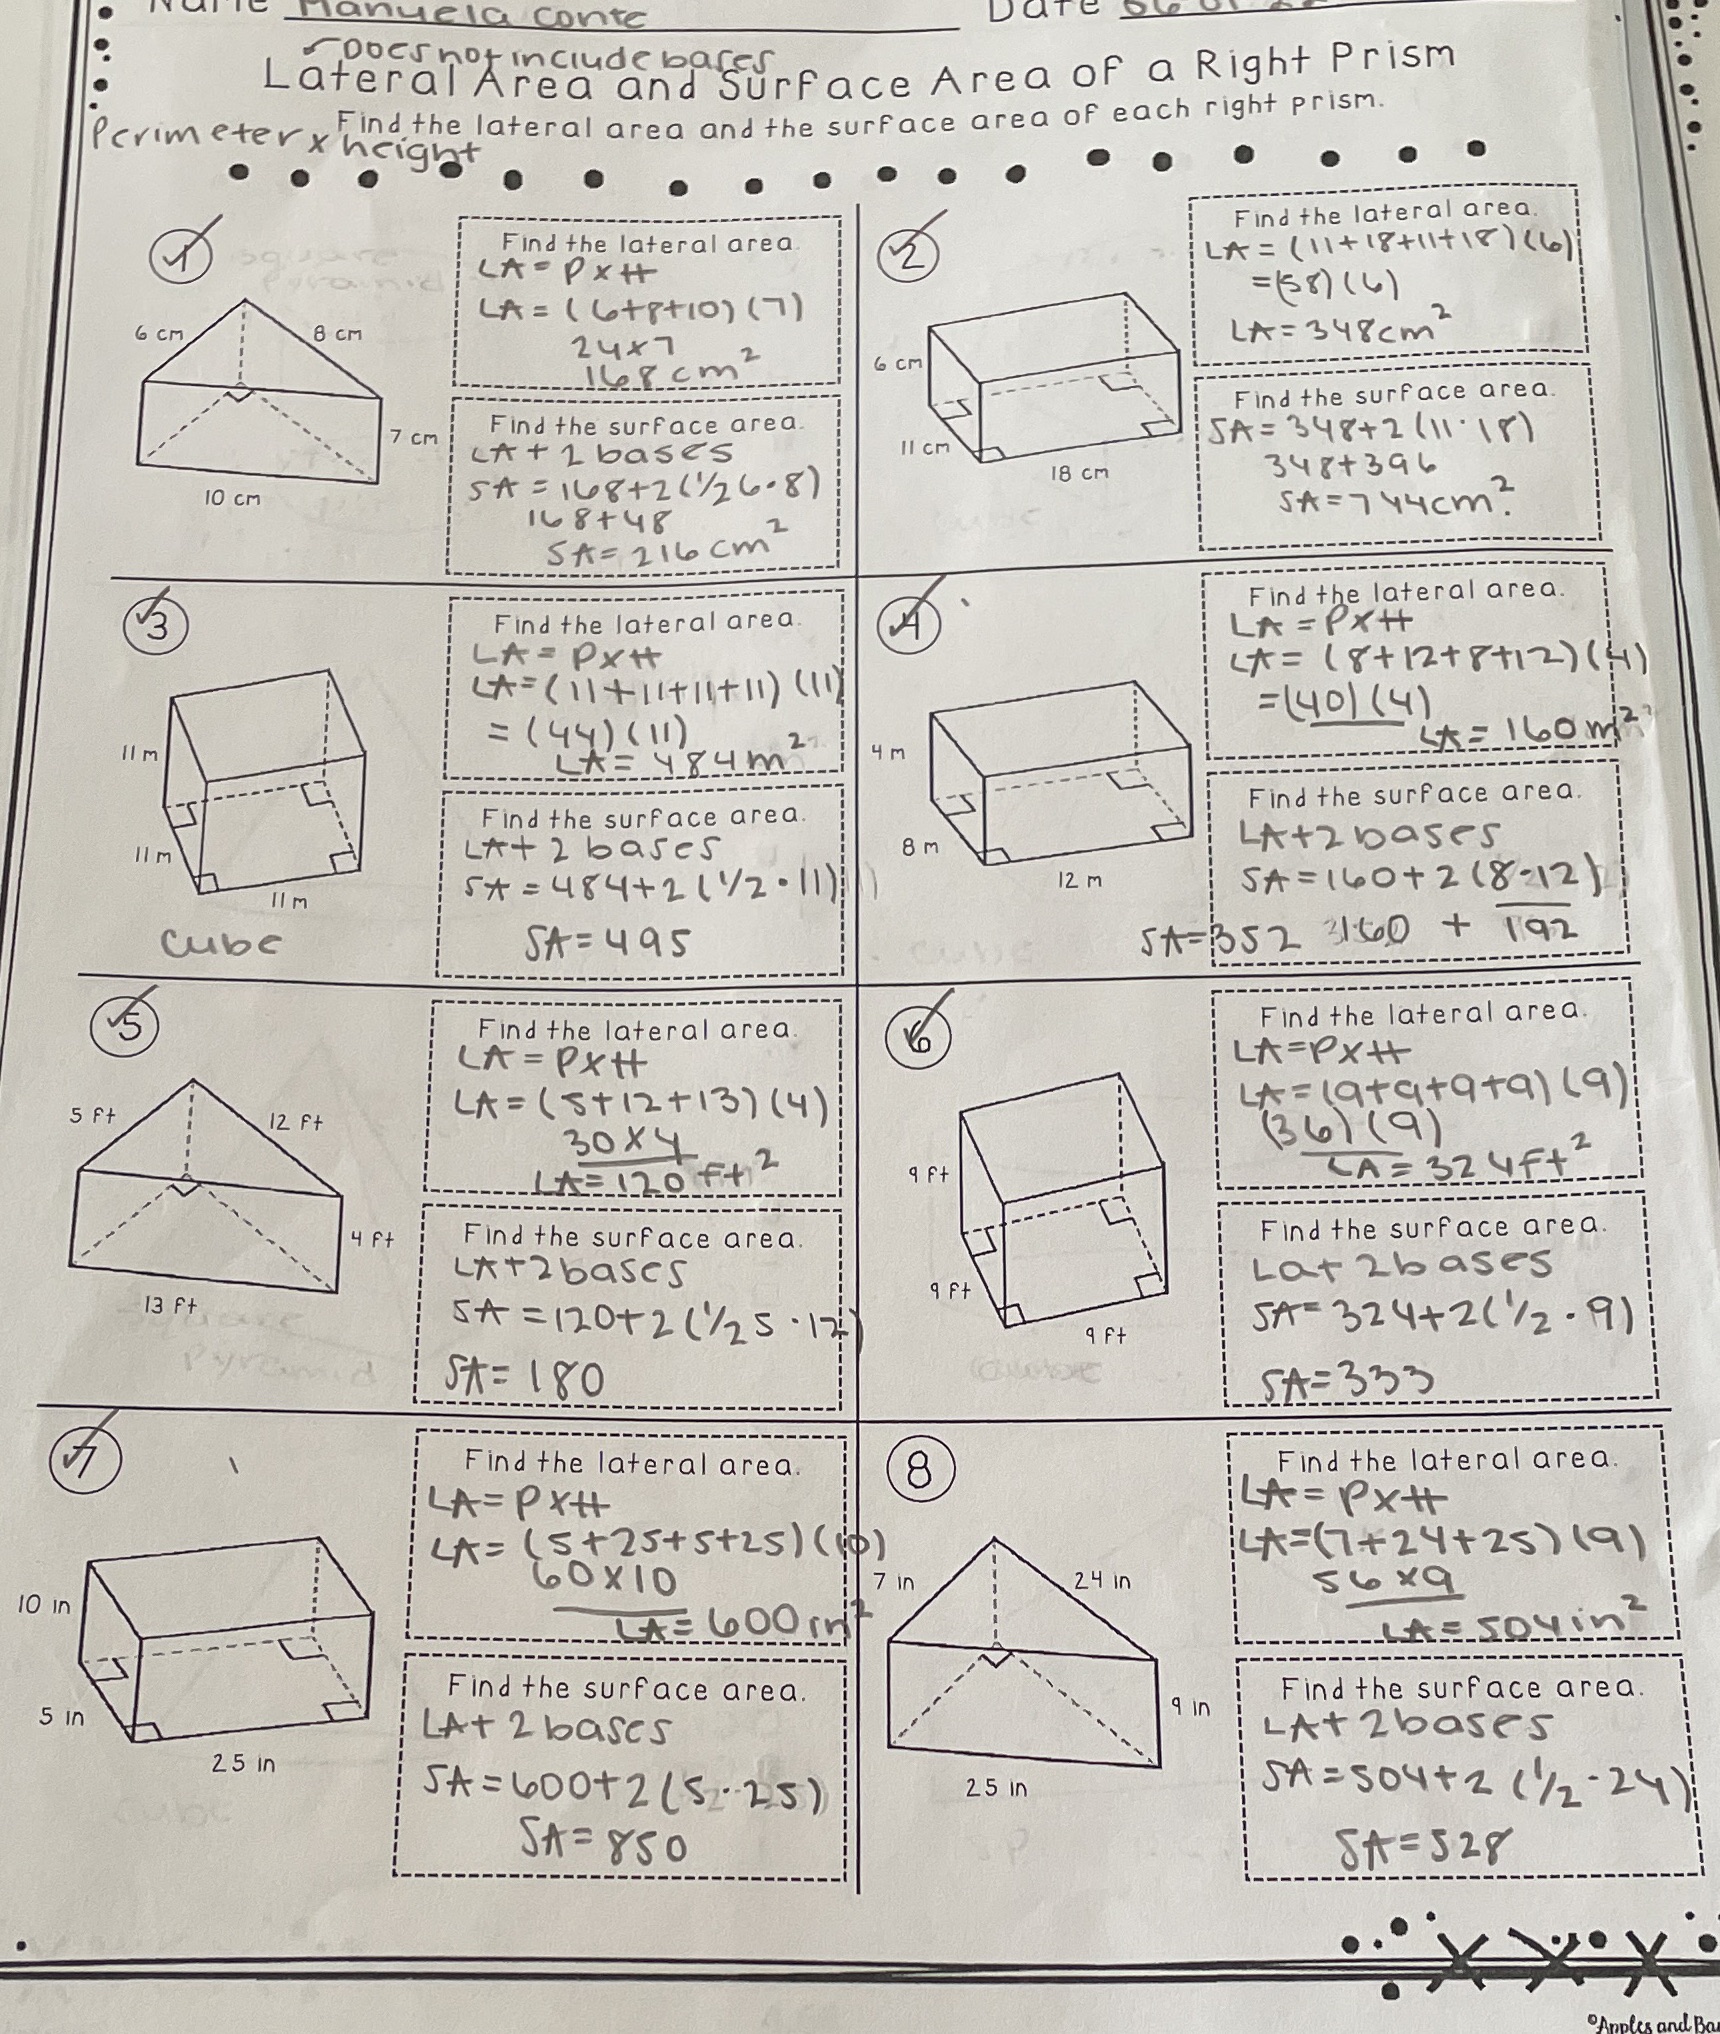 Name Manuela Conte
Date
Does not include bases
Lateral Area and Surface Area of a Right Prism
Find the lateral area and the surface area of each right prism.
Perimeter x height
1
6 cm
8 cm
7 cm
10 cm
Find the lateral area.
LA = P x H
LA = (6+8+10) (7)
24 x 7
168 cm²
Find the surface area.
LA + 2 bases
SA = 168+2(1/2 6·8)
168+48
SA= 216 cm²
2
6 cm
11 cm
18 cm
Find the lateral area.
LA = (11+18+11+18) (6)
=(58) (6)
LA = 348cm²
Find the surface area.
SA = 348+2(11·18)
348+396
SA=744cm².
3
11 m
11 m
11 m
cube
Find the lateral area.
LA = P x H
LA=(11+11+11+11) (11)
= (44) (11)
LA= 484m²
Find the surface area.
LA+ 2 bases
SA = 484+2(1/2 · 11)
SA = 495
4
4 m
8 m
12 m
Find the lateral area.
LA = P x H
LA = (8+12+8+12) (4)
=(40) (4)
LA = 160m²
Find the surface area.
LA+2 bases
SA=160+2 (8·12)
SA=352 160 + 192
5
5 ft
12 ft
4 ft
13 ft
Find the lateral area.
LA = P x H
LA = (5+12+13) (4)
30 x 4
LA=120 ft²
Find the surface area.
LA+2 bases
SA =120+2(1/2 5·12)
SA= 180
6
9 ft
9 ft
9 ft
Find the lateral area.
LA=P x H
LA=(9+9+9+9) (9)
(36) (9)
LA = 324ft²
Find the surface area.
La+ 2 bases
SA= 324+2(1/2 · 9)
SA=333
7
10 in
5 in
25 in
Find the lateral area.
LA = P x H
LA= (5+25+5+25) (10)
60 x 10
LA= 600 in²
Find the surface area.
LA+ 2 bases
SA=600+2(5·25)
SA= 850
8
7 in
24 in
9 in
25 in
Find the lateral area.
LA= P x H
LA=(7+24+25) (9)
56 x 9
LA= 504in²
Find the surface area.
LA+ 2 bases
SA = 504+2 (1/2 · 24)
SA = 528
©Apples and Ba